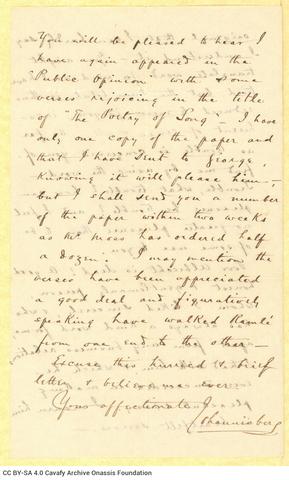 You will be pleased to hear I
have again appeared in the
"Public Opinion" with some
verses rejoicing in the title
of "The Poetry of Song". I have
only one copy of the paper and
that I have sent to George,
knowing it will please him,—
but I shall send you a number
of the paper within two weeks
as Mr Moss has ordered half
a dozen. I may mention the
verses have been appreciated
a good deal and figuratively
speaking have walked Ramlé
from one end to the other—
Excuse this hurried & brief
letter & believe me ever
Your affectionate J.
CC BY-SA 4.0 Cavafy Archive Onassis Foundation